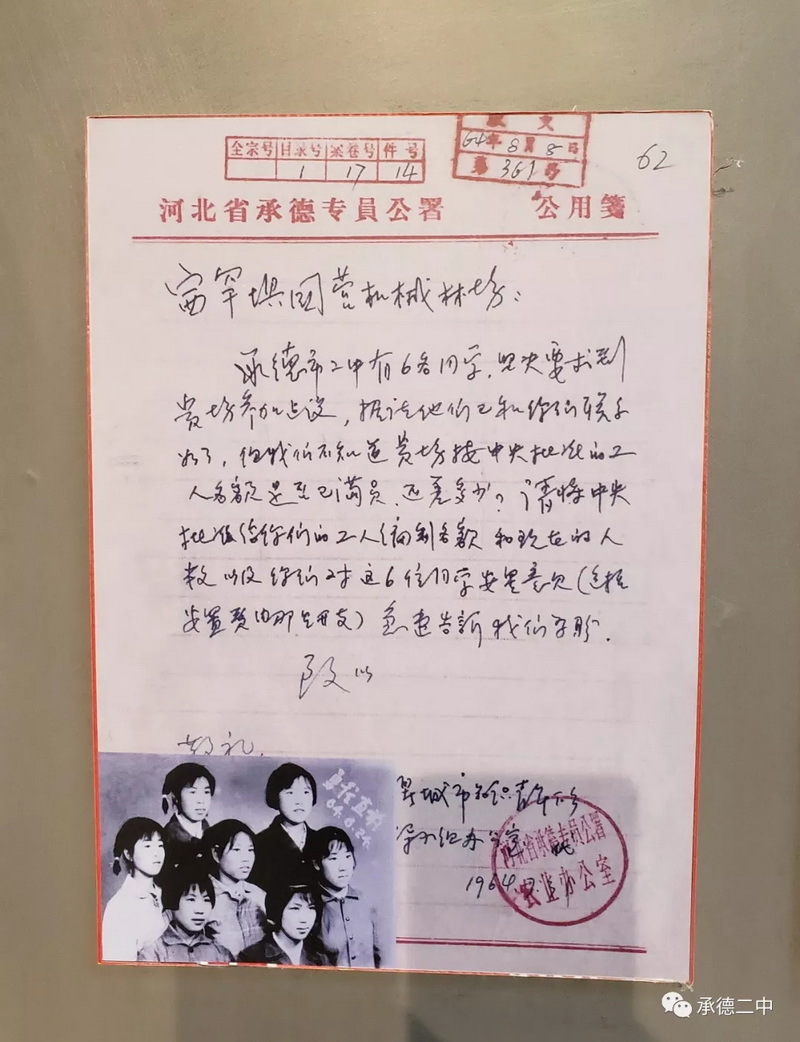 全宗号 目录号 案卷号 件号
1 17 14
收文
64年8月8日
第361号
62
河北省承德专員公署 公用箋
塞罕坝国营机械林场：
承德市二中有6名同学，坚决要求到
贵场参加建设，据说他们已和你们联系
好了，但我们不知道贵场按中央批准的工
人名额是否已满员，还差多少？请将中央
批准给你们的工人编制名额和现在的人
数以及你们对这6位同学安置意见（包括
安置费由那里开支）急速告訴我们为盼。
致以
敬礼。
城市知识青年下乡
领导小组办公室
1964
河北省承德专員公署
农业办公室
勇往直前
64.8.24
承德二中